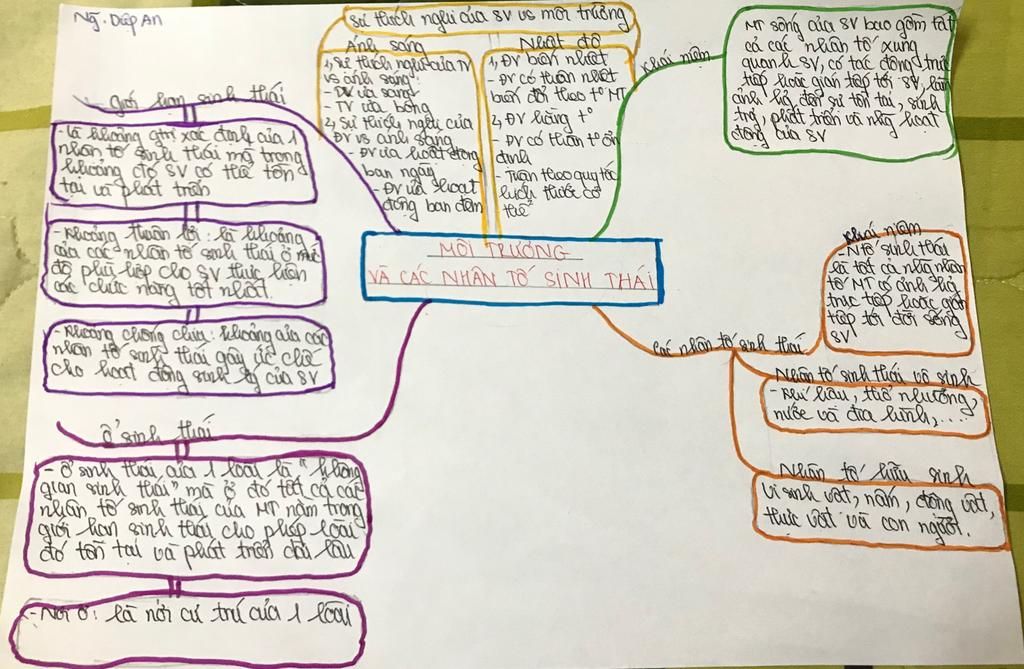 Ng. Diệp An
Sự thích nghi của SV vs môi trường
Ánh sáng
1, Sự thích nghi của TV
vs ánh sáng
- TV ưa sáng
- TV ưa bóng
2, Sự thích nghi của
ĐV vs ánh sáng
- ĐV ưa hoạt động
ban ngày
- ĐV ưa hoạt
động ban đêm
Nhiệt độ
1, ĐV biến nhiệt
- ĐV có thân nhiệt
biến đổi theo t° MT
2, ĐV hằng t°
- ĐV có thân t° ổn
định
- Tuân theo quy tắc
kích thước cơ
thể
Khái niệm
MT sống của SV bao gồm tất
cả các nhân tố xung
quanh SV, có tác động trực
tiếp hoặc gián tiếp tới SV, làm
ảnh hg đến sự tồn tại, sinh
trg, phát triển và nhg hoạt
động của SV
giới hạn sinh thái
- là khoảng gtrị xác định của 1
nhân tố sinh thái mà trong
khoảng đó SV có thể tồn
tại và phát triển
- Khoảng thuận lợi: là khoảng
của các nhân tố sinh thái ở mức
độ phù hợp cho SV thực hiện
các chức năng tốt nhất.
- Khoảng chống chịu: khoảng của các
nhân tố sinh thái gây ức chế
cho hoạt động sinh lý của SV
MÔI TRƯỜNG
VÀ CÁC NHÂN TỐ SINH THÁI
Các nhân tố sinh thái
Khái niệm
- Ntố sinh thái
là tất cả nhg nhân
tố MT có ảnh hg
trực tiếp hoặc gián
tiếp tới đời sống
SV
Nhân tố sinh thái vô sinh
- Khí hậu, thổ nhưỡng,
nước và địa hình,....
Nhân tố hữu sinh
Vi sinh vật, nấm, động vật,
thực vật và con người.
ổ sinh thái
- Ổ sinh thái của 1 loài là "không
gian sinh thái" mà ở đó tất cả các
nhân tố sinh thái của MT nằm trong
giới hạn sinh thái cho phép loài
đó tồn tại và phát triển lâu
- Nơi ở: là nơi cư trú của 1 loài